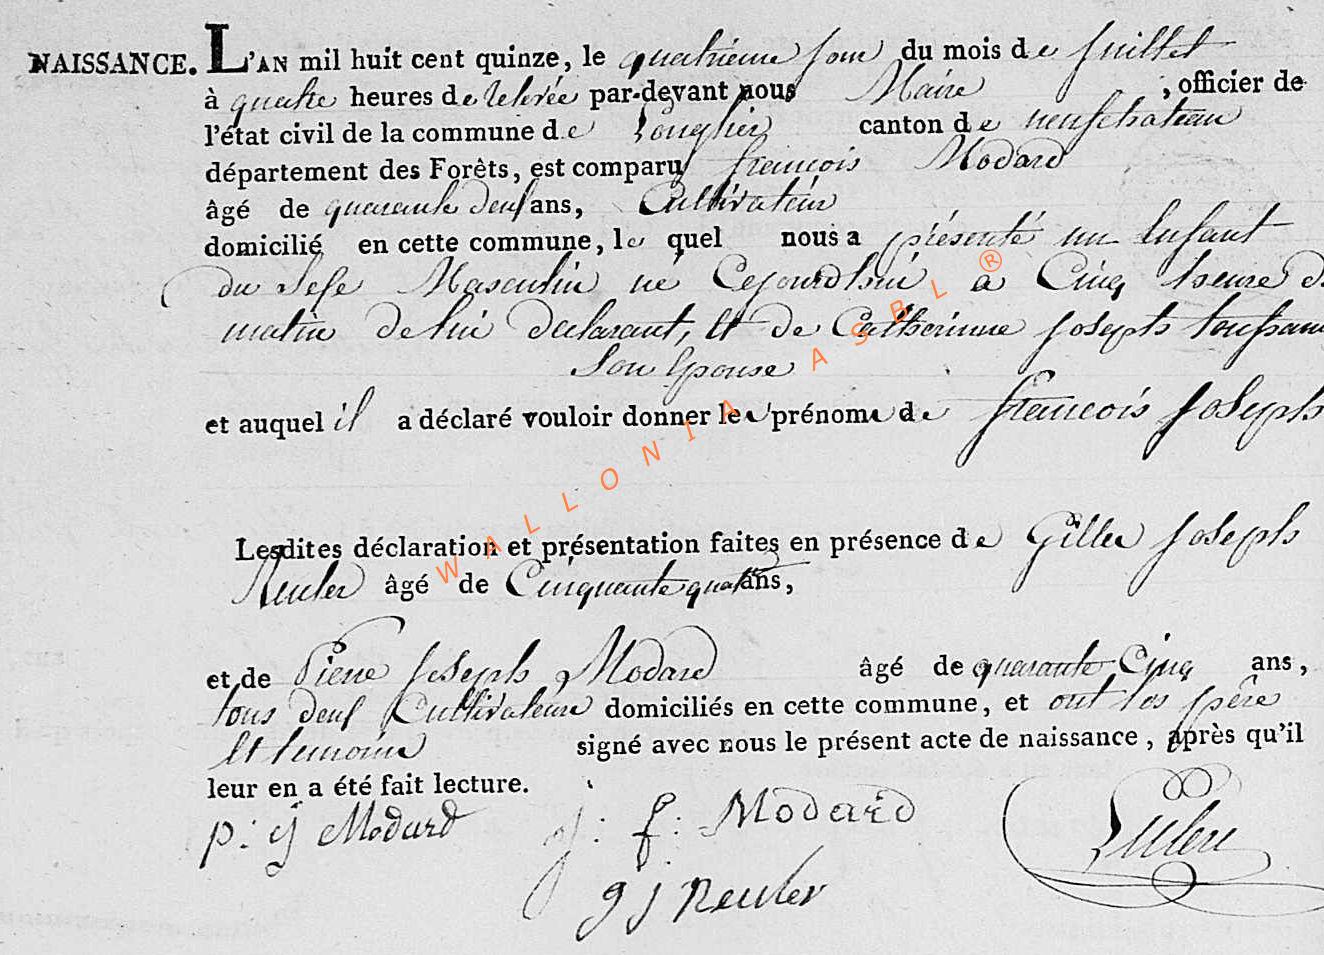 NAISSANCE. L'AN mil huit cent quinze, le quatrieme jour du mois de juillet
à quatre heures de relevée par-devant nous Maire, officier de
l'état civil de la commune de Longlier canton de neufchateau
département des Forêts, est comparu francois Modard
âgé de quarante deux ans, Cultivateur
domicilié en cette commune, le quel nous a présenté un Enfant
du Sexe Masculin né Cejourdhui a Cinq heure du
matin de lui declarant, Et de Catherinne joseph toussaint
Son Epouse
et auquel il a déclaré vouloir donner les prénoms de francois joseph
Lesdites déclaration et présentation faites en présence de Gille joseph
Reuler âgé de Cinquante quatre ans,
et de Piere joseph Modard âgé de quarante Cinq ans,
tous deux Cultivateur domiciliés en cette commune, et ont les père
Et temoin signé avec nous le présent acte de naissance, après qu'il
leur en a été fait lecture.
p: j Modard j: f: Modard
g j Reuler
WALLONIA ASBL ®